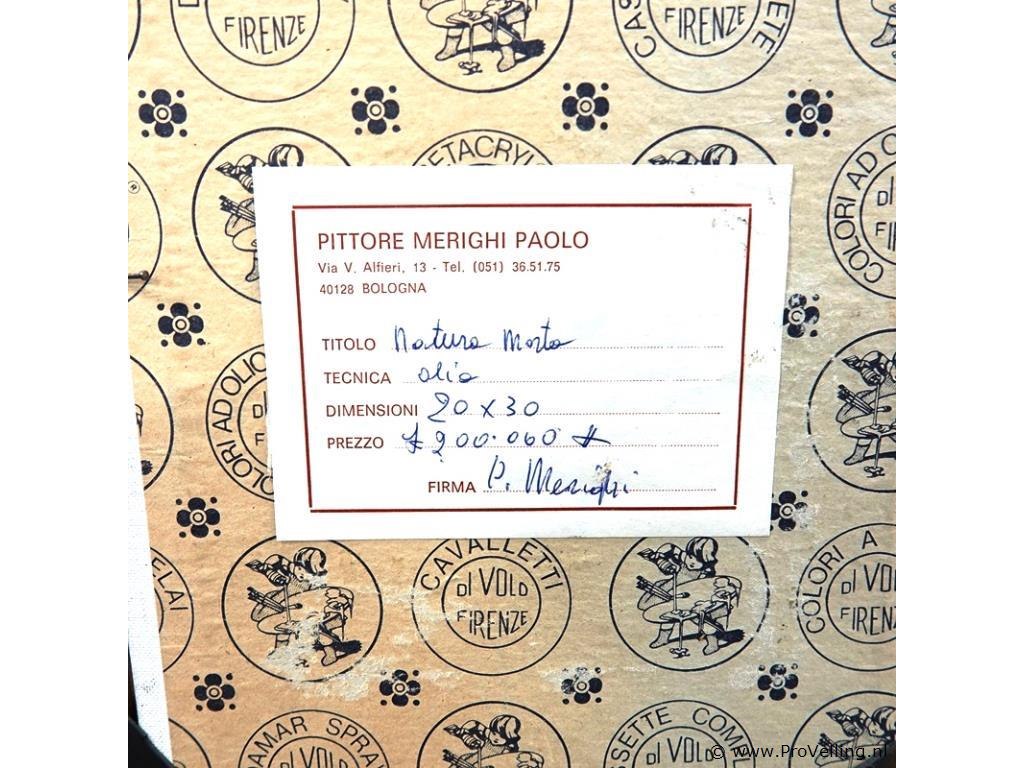 FIRENZE
FIRENZE
METACRYL
COLORI AD O
DI
FI
PITTORE MERIGHI PAOLO
Via V. Alfieri, 13 - Tel. (051) 36.51.75
40128 BOLOGNA
TITOLO Natura Morta
TECNICA olio
DIMENSIONI 20 x 30
PREZZO £ 200.000 #
FIRMA P. Merighi
COLORI AD OLIO
CAVALLETTI
DI VOLO
FIRENZE
COLORI A
DI VOL
FIREN
ELAI
DAMAR SPRA
DI VOLO
SSETTE COM
DI VOLO
© www.ProVeiling.nl